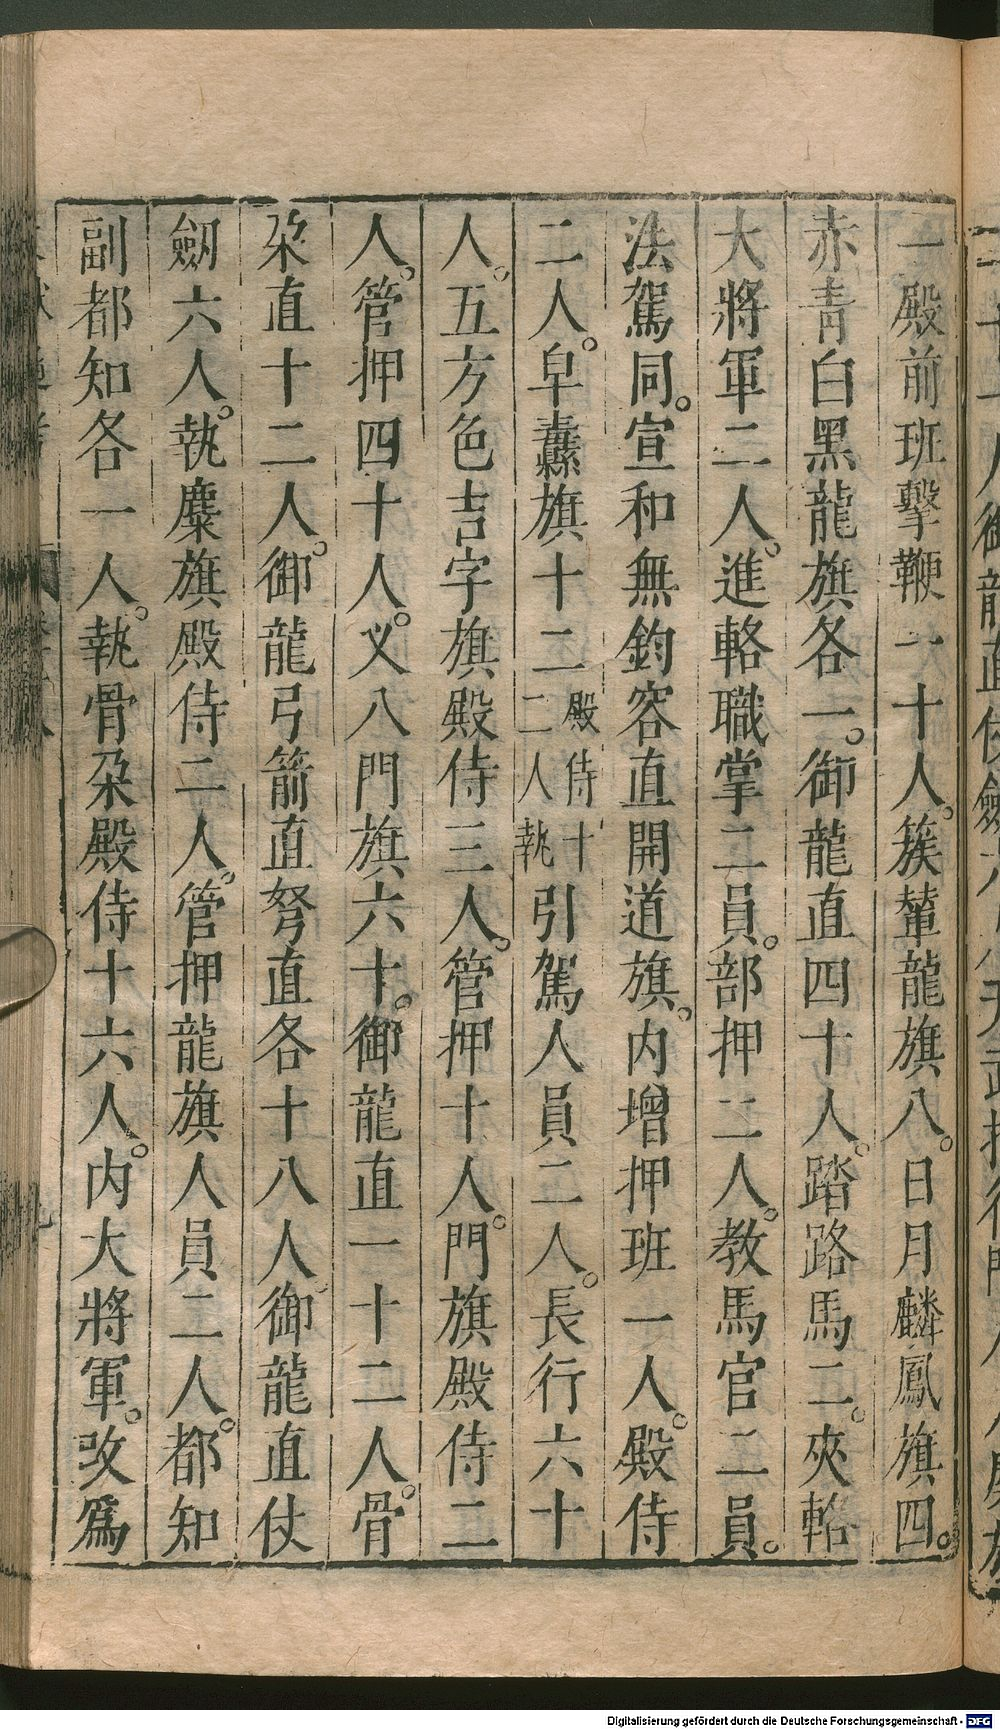 一殿前班擊鞭一十人。簇輦龍旗八。日月麟鳳旗四。
赤青白黑龍旗各一。御龍直四十人。踏路馬二。夾輅
大將軍二人。進輅職掌二員。部押二人。教馬官二員。
法駕同。宣和無鈞容直開道旗。內增押班一人。殿侍
二人。皁纛旗十二殿侍十二人執引駕人員二人。長行六十
人。五方色吉字旗殿侍三人。管押十人。門旗殿侍二
人。管押四十人。又八門旗六十。御龍直一十二人。骨
朶直十二人。御龍弓箭直弩直各十八人。御龍直仗
劒六人。執麋旗殿侍二人。管押龍旗人員二人。都知
副都知各一人。執骨朶殿侍十六人。內大將軍。改爲
Digitalisierung gefördert durch die Deutsche Forschungsgemeinschaft - DFG